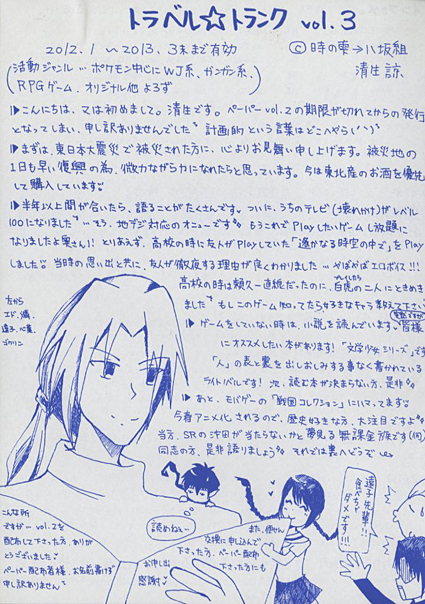 トラベル☆トランク vol.3
2012.1〜2013.3末まで有効
©時の雫→八坂組
清生諒
(活動ジャンル…ポケモン中心にWJ系、ガンガン系、
RPGゲーム、オリジナル他よろず)
▷こんにちは、又は初めまして。清生です。ペーパーvol.2の期限が切れてからの発行
となってしまい、申し訳ありませんでした 計画的という言葉はどこへやら(´`)
▷まずは、東日本大震災で被災された方に、心よりお見舞い申し上げます。被災地の
1日も早い復興の為、微力ながら力になれたらと思っています。今は東北産のお酒を優先
して購入しています
▷半年以上間が合いたら、語ることがたくさんです。ついに、うちのテレビ(壊れかけ)がレベル
100になりました …そう、地デジ対応のオニューです もうこれでPlayしたいゲームし放題に
なりましたよ奥さん!とりあえず、高校の時に友人がPlayしていた「遙かなる時空の中で」をPlay
しました 当時の思い出と共に、友人が徹夜する理由が良くわかりました…やばやばエロボイス!!!
高校の時は頼久一直線だったのに、白虎の二人にときめき
ました もしこのゲーム知ってたら好きなキャラ教えて下さい
▷ゲームをしていない時は、小説を読んでいます。突然ですが皆様
にオススメしたい本があります!「文学少女シリーズ」です
「人」の表と裏を出しおしみする事なく書かれている
ライトノベルです!次、読む本が決まらない方、是非
▷あと、モバゲーの「戦国コレクション」にハマってます
今春アニメ化されるので、歴史好きな方、大注目ですよ
当方、SRの沖田が当たらないかと夢見る無課金族です(何)
同志の方、是非語りましょう それでは裏へどうぞ
左から
エド、燐、
遠子、心葉、
ゴクリン
読めねぃ〜
遠子先輩!!
食べちゃ
ダメです!!!
こんな所
ですが…vol.2を
配布して下さった方、ありが
とうございました
ペーパー配布者様、お名前書けず
申し訳ありません
また、便せん
交換に申し込んで
下さった方、ペーパー配布
お申し出
下さった方にも
感謝す